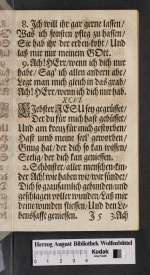 8. Ich will ihr gar gerne lassen/
Was ich sonsten pfleg zu hassen/
Sie hab ihr der erden-kobt/ Und
laß mir nur meinen GOtt.
9. Ach! HErr/ wenn ich dich nur
habe/ Sag' ich allen andern abe/
Legt man mich gleich in das grab/
Ach! HErr/ wenn ich dich nur hab.
XCVI.
Liebster JESU sey gegrüsset/
Der du für mich hast gebüsset/
Und am kreutz für mich gestorben/
Hast und meine seel erworben/
Gnug hat/ der dich so kan wissen/
Seelig/ der dich kan geniessen.
2. Schönster/ aller menschen kinder
Ach! wie haben wir/ wir sünder/
Dich so grausamlich gebunden und
geschlagen voller wunden/ Laß mir
deine wunden fliessen/ Und den Lebenshafft
geniessen. J 5 3. Ach
Herzog August Bibliothek Wolfenbüttel